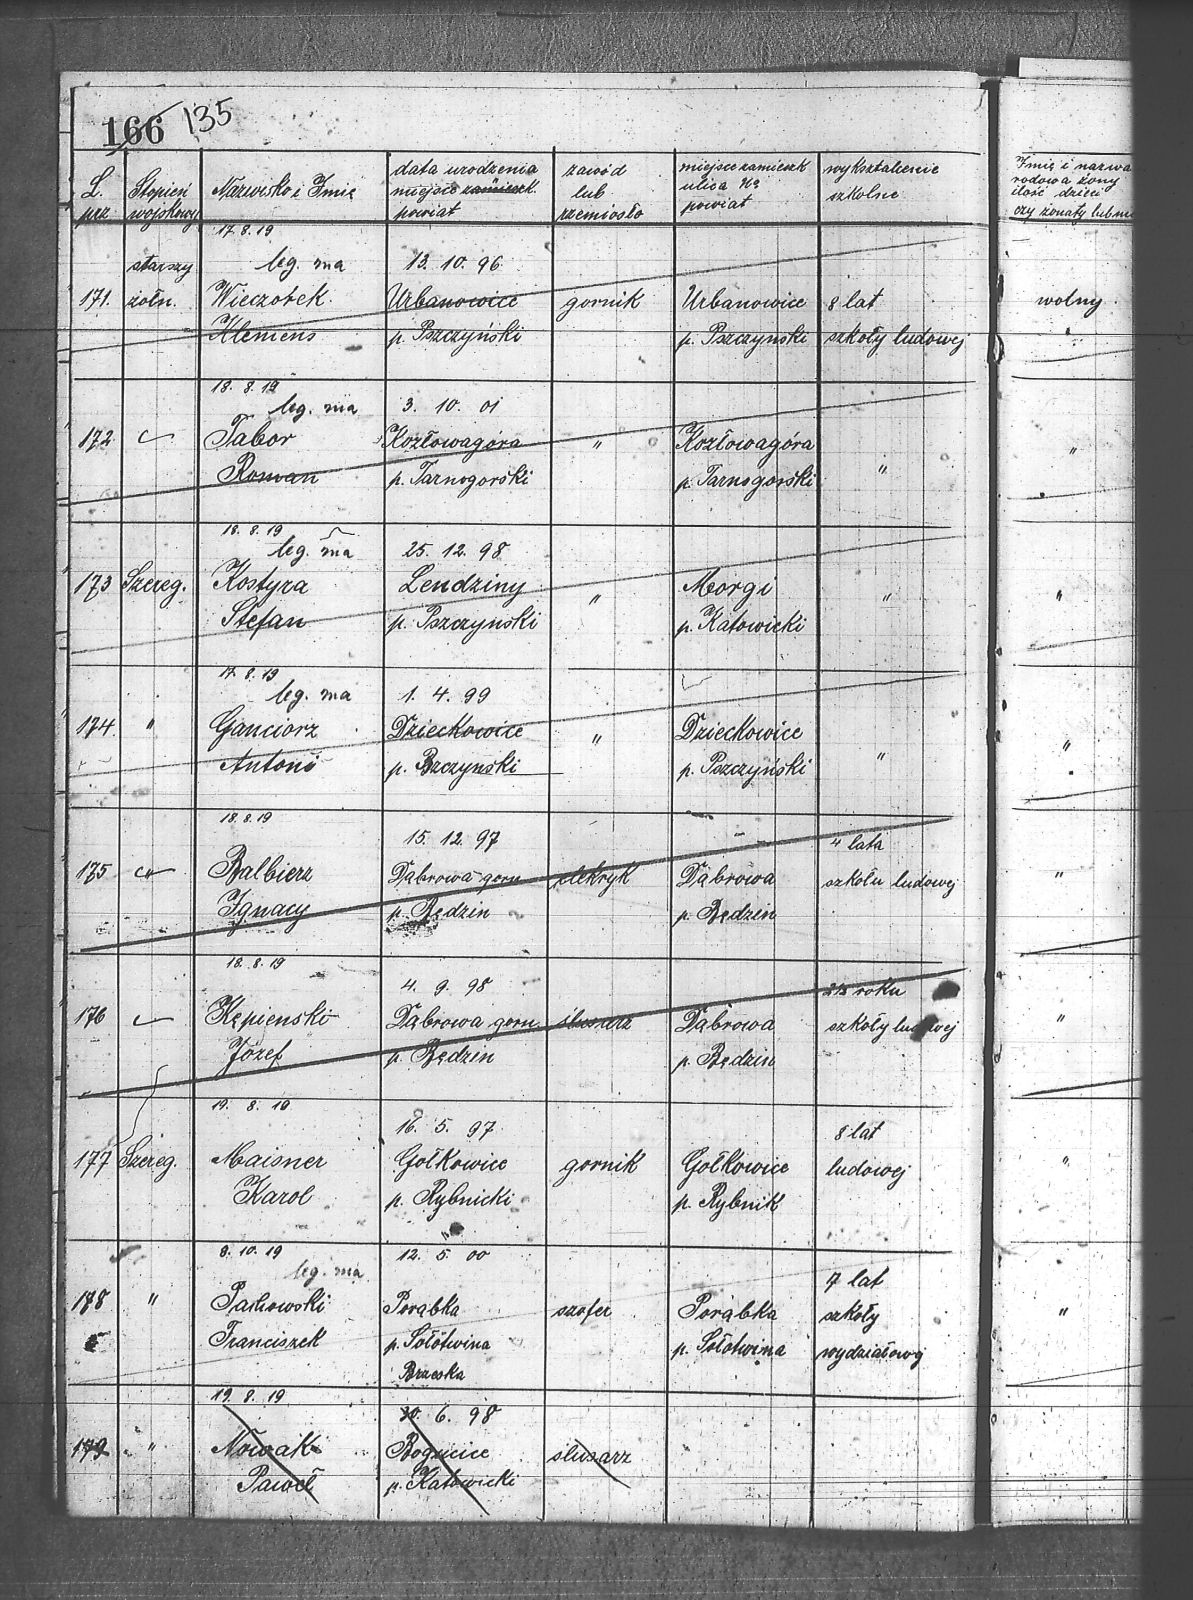 166 135
L. prz
Stopień wojskowy
Nazwisko i Imię
data urodzenia miejsce zamieszk. powiat
zawód lub rzemiosło
miejsce zamieszk ulica № powiat
wykształcenie szkolne
Imię i nazwa rodowa żony ilość dzieci czy żonaty lub
17. 8. 19
starszy leg. ma 13. 10. 96
171. żołn. Wieczorek Urbanowice gornik Urbanowice 8 lat wolny
Klemens p. Pszczyński p. Pszczyński szkoły ludowej "
18. 8. 19
leg. ma 3. 10. 01
172 " Tabor Kozłowagóra " Kozłowagóra "
Roman p. Tarnogorski p. Tarnogorski "
18. 8. 19
leg. ma 25. 12. 98
173 Szereg. Kostyra Lendziny " Morgi " "
Stefan p. Pszczynski p. Katowicki
17. 8. 19
leg. ma 1. 4. 99
174. " Ganciorz Dzieckowice " Dzieckowice "
Antoni p. Pszczynski p. Pszczyński "
18. 8. 19
15. 12. 97 4 lata
175 " Balbierz Dąbrowa gorn elekryk Dąbrowa szkołu ludowej "
Ignacy p. Będzin p. Będzin
18. 8. 19
4. 9. 98 roku
176 " Kępienski Dąbrowa gorn. ślusarz Dąbrowa szkoły ludowej "
Józef p. Będzin p. Będzin
19. 8. 19
16. 5. 97 8 lat
177 Szereg. Maisner Gołkowice gornik Gołkowice ludowej "
Karol p. Rybnicki p. Rybnik
8. 10. 19 12. 5. 00
leg. ma 7 lat
178 " Porąbka szofer Porąbka szkoły "
Franciszek p. Sołotwina p. Sołotwina wydziałowy
Brzeska
19. 8. 19
30. 6. 98
179 " Nowak Bogucice slusarz
Paweł p. Katowicki